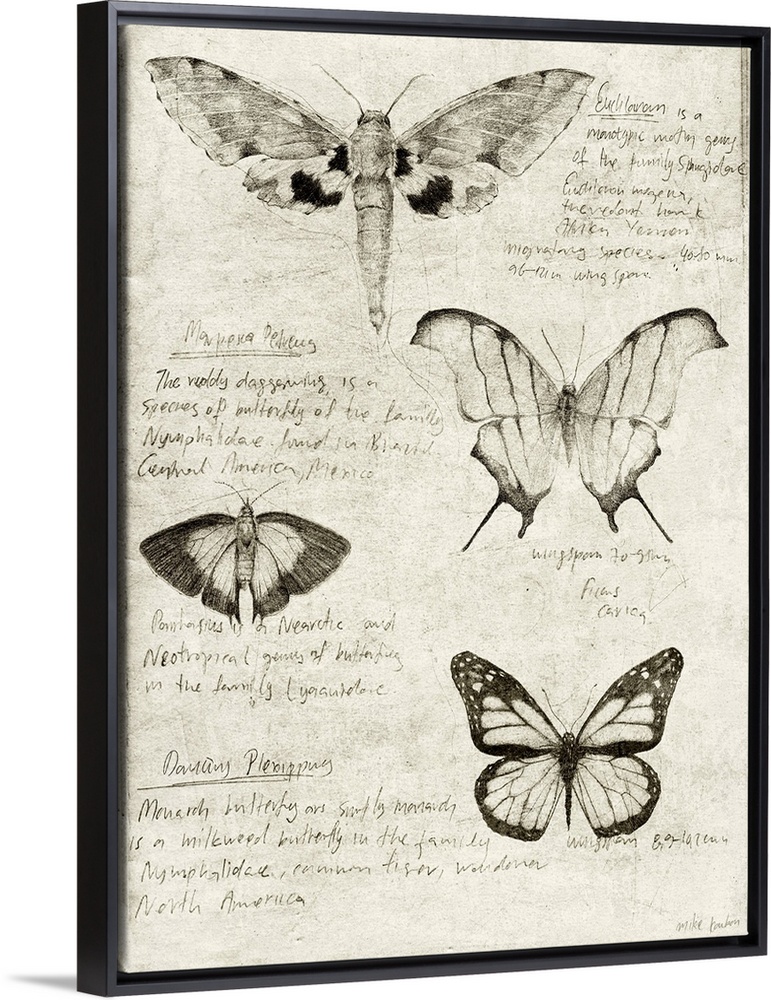 Euchloron is a
monotypic moth genus
of the family Sphingidae
Euchloron megaera,
the verdant hawk
Africa Yemen
migratory species. 40-50 mm
96-12cm wing span.
Marpesia Petreus
The ruddy daggerwing is a
species of butterfly of the family
Nymphalidae found in Brazil
Central America, Mexico
wingspan 70-95mm
Ficus
carica
Panthasius is a Nearctic and
Neotropical genus of butterfley
in the family Lycaenidae
Danaus Plexippus
Monarch butterfley or simply monarch
is a milkweed butterfly in the family
Nymphalidae, common tiger, wanderer
North America
wingspan 8,9-10,2cm
mike